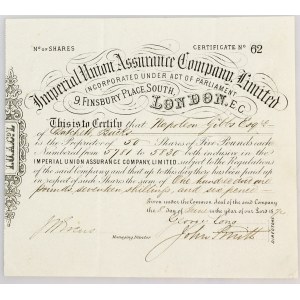 No OF SHARES CERTIFICATE No 62
Imperial Union Assurance Company, Limited
INCORPORATED UNDER ACT OF PARLIAMENT
9, FINSBURY PLACE, SOUTH,
LONDON, E.C.
This is to Certify that Napoleon Gibbs Esqre
of
is the Proprietor of 50 Shares of Five Pounds each
Numbered from to inclusive in the
IMPERIAL UNION ASSURANCE COMPANY, LIMITED, subject to the Regulations
of the said Company and that up to this day there has been paid up
in respect of such Shares the sum of One hundred and one
pounds seventeen shillings, and six pence
Given under the Common Seal of the said Company
the day of in the year of our Lord
George
Managing Director John Smith
LIMITED